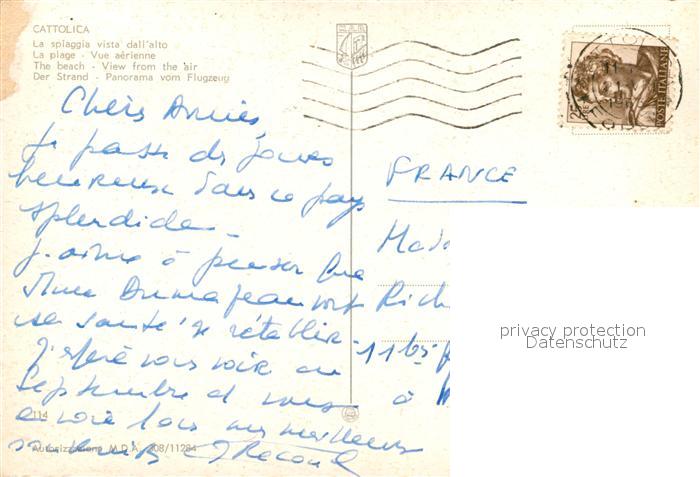 CATTOLICA
La spiaggia vista dall'alto
La plage - Vue aérienne
The beach - View from the air
Der Strand - Panorama vom Flugzeug
Chers Amies,
Je passe des jours
heureuse dans ce pays
splendide.
J'aime à penser que
Mme voit
sa santé se rétablir.
J'espère vous voir en
Septembre et vous
envoie tous mes meilleurs
souvenirs
114
Autorizzazione M.D.A. 08/11284
25
POSTE ITALIANE
FRANCE
Mad
Rich
11 bis
à
privacy protection
Datenschutz